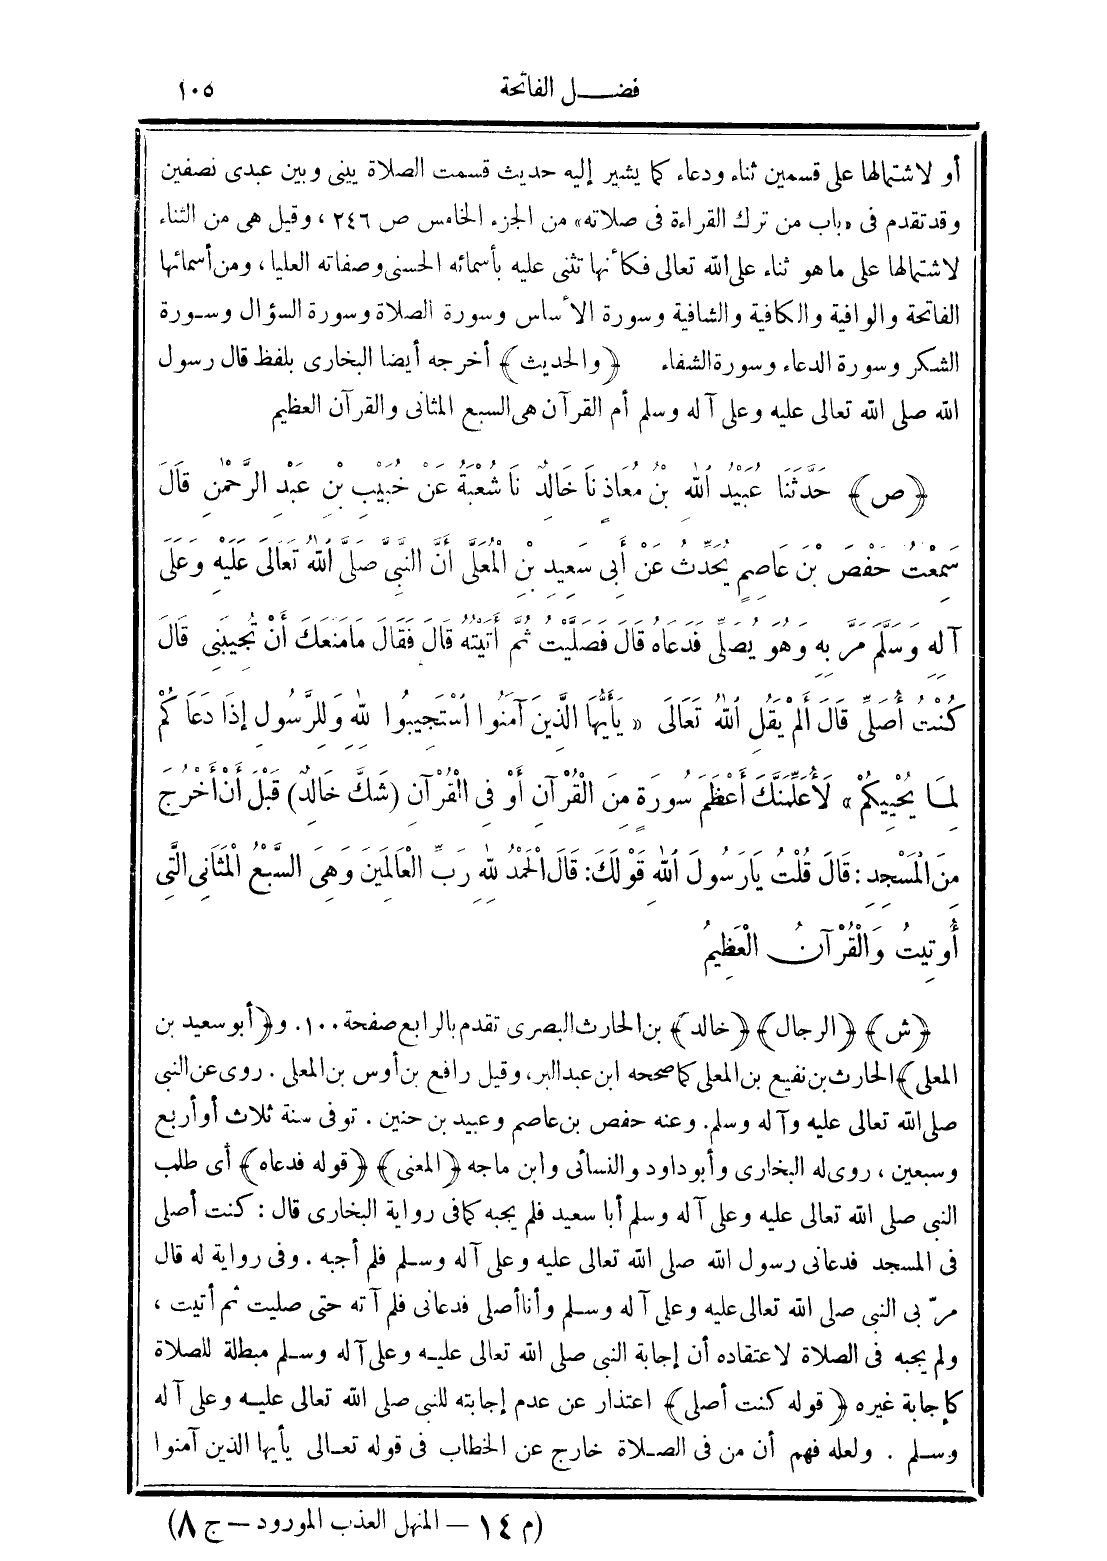 فضل الفاتحة ١٠٥
أو لاشتمالها على قسمين ثناء ودعاء كما يشير إليه حديث قسمت الصلاة بينى وبين عبدى نصفين
وقد تقدم فى «باب من ترك القراءة فى صلاته» من الجزء الخامس ص ٢٤٦ ، وقيل هى من الثناء
لاشتمالها على ما هو ثناء على الله تعالى فكأنها تثنى عليه بأسمائه الحسنى وصفاته العليا ، ومن أسمائها
الفاتحة والوافية والكافية والشافية وسورة الأساس وسورة الصلاة وسورة السؤال وسورة
الشكر وسورة الدعاء وسورة الشفاء ﴿والحديث﴾ أخرجه أيضا البخارى بلفظ قال رسول
الله صلى الله تعالى عليه وعلى آله وسلم أم القرآن هى السبع المثانى والقرآن العظيم
﴿ص﴾ حَدَّثَنَا عُبَيْدُ اللهِ بْنُ مُعَاذٍ نَا خَالِدٌ نَا شُعْبَةُ عَنْ خُبَيْبِ بْنِ عَبْدِ الرَّحْمٰنِ قَالَ
سَمِعْتُ حَفْصَ بْنَ عَاصِمٍ يُحَدِّثُ عَنْ أَبِى سَعِيدِ بْنِ الْمُعَلَّى أَنَّ النَّبِىَّ صَلَّى اللهُ تَعَالَى عَلَيْهِ وَعَلَى
آلِهِ وَسَلَّمَ مَرَّ بِهِ وَهُوَ يُصَلِّى فَدَعَاهُ قَالَ فَصَلَّيْتُ ثُمَّ أَتَيْتُهُ قَالَ فَقَالَ مَا مَنَعَكَ أَنْ تُجِيبَنِى قَالَ
كُنْتُ أُصَلِّى قَالَ أَلَمْ يَقُلِ اللهُ تَعَالَى « يَأَيُّهَا الَّذِينَ آمَنُوا اسْتَجِيبُوا لِلهِ وَلِلرَّسُولِ إِذَا دَعَاكُمْ
لِمَا يُحْيِيكُمْ» لَأُعَلِّمَنَّكَ أَعْظَمَ سُورَةٍ مِنَ الْقُرْآنِ أَوْ فِى الْقُرْآنِ (شَكَّ خَالِدٌ) قَبْلَ أَنْ أَخْرُجَ
مِنَ الْمَسْجِدِ : قَالَ قُلْتُ يَارَسُولَ اللهِ قَوْلَكَ : قَالَ الْحَمْدُ لِلهِ رَبِّ الْعَالَمِينَ وَهِىَ السَّبْعُ الْمَثَانِى الَّتِى
أُوتِيتُ وَالْقُرْآنُ الْعَظِيمُ
﴿ش﴾ ﴿الرجال﴾ ﴿خالد﴾ بن الحارث البصرى تقدم بالرابع صفحة ١٠٠. و﴿أبو سعيد بن
المعلى﴾ الحارث بن نفيع بن المعلى كما صححه ابن عبد البر، وقيل رافع بن أوس بن المعلى . روى عن النبى
صلى الله تعالى عليه وآله وسلم. وعنه حفص بن عاصم وعبيد بن حنين . توفى سنة ثلاث أو أربع
وسبعين ، روى له البخارى وأبو داود والنسائى وابن ماجه ﴿المعنى﴾ ﴿قوله فدعاه﴾ أى طلب
النبى صلى الله تعالى عليه وعلى آله وسلم أبا سعيد فلم يجبه كما فى رواية البخارى قال : كنت أصلى
فى المسجد فدعانى رسول الله صلى الله تعالى عليه وعلى آله وسلم فلم أجبه . وفى رواية له قال
مرّ بى النبى صلى الله تعالى عليه وعلى آله وسلم وأنا أصلى فدعانى فلم آته حتى صليت ثم أتيت ،
ولم يجبه فى الصلاة لاعتقاده أن إجابة النبى صلى الله تعالى عليه وعلى آله وسلم مبطلة للصلاة
كإجابة غيره ﴿قوله كنت أصلى﴾ اعتذار عن عدم إجابته للنبى صلى الله تعالى عليه وعلى آله
وسلم . ولعله فهم أن من فى الصلاة خارج عن الخطاب فى قوله تعالى يأيها الذين آمنوا
(م ١٤ – المنهل العذب المورود – ج ٨)